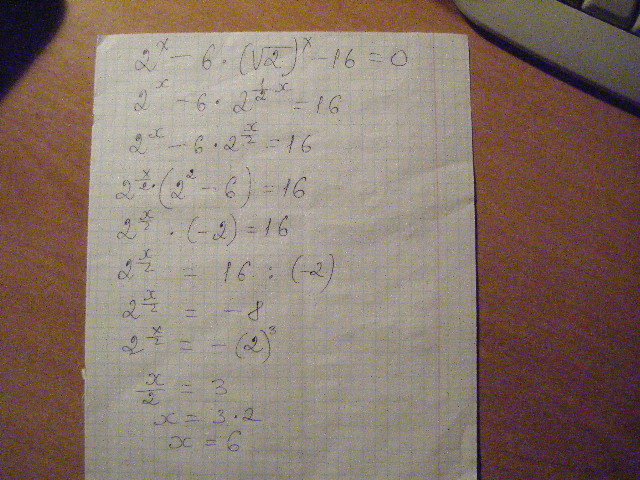 2^x - 6 · (√2)^x - 16 = 0
2^x - 6 · 2^(1/2 · x) = 16
2^x - 6 · 2^(x/2) = 16
2^(x/2) · (2^2 - 6) = 16
2^(x/2) · (-2) = 16
2^(x/2) = 16 : (-2)
2^(x/2) = -8
2^(x/2) = -(2)^3
x/2 = 3
x = 3 · 2
x = 6